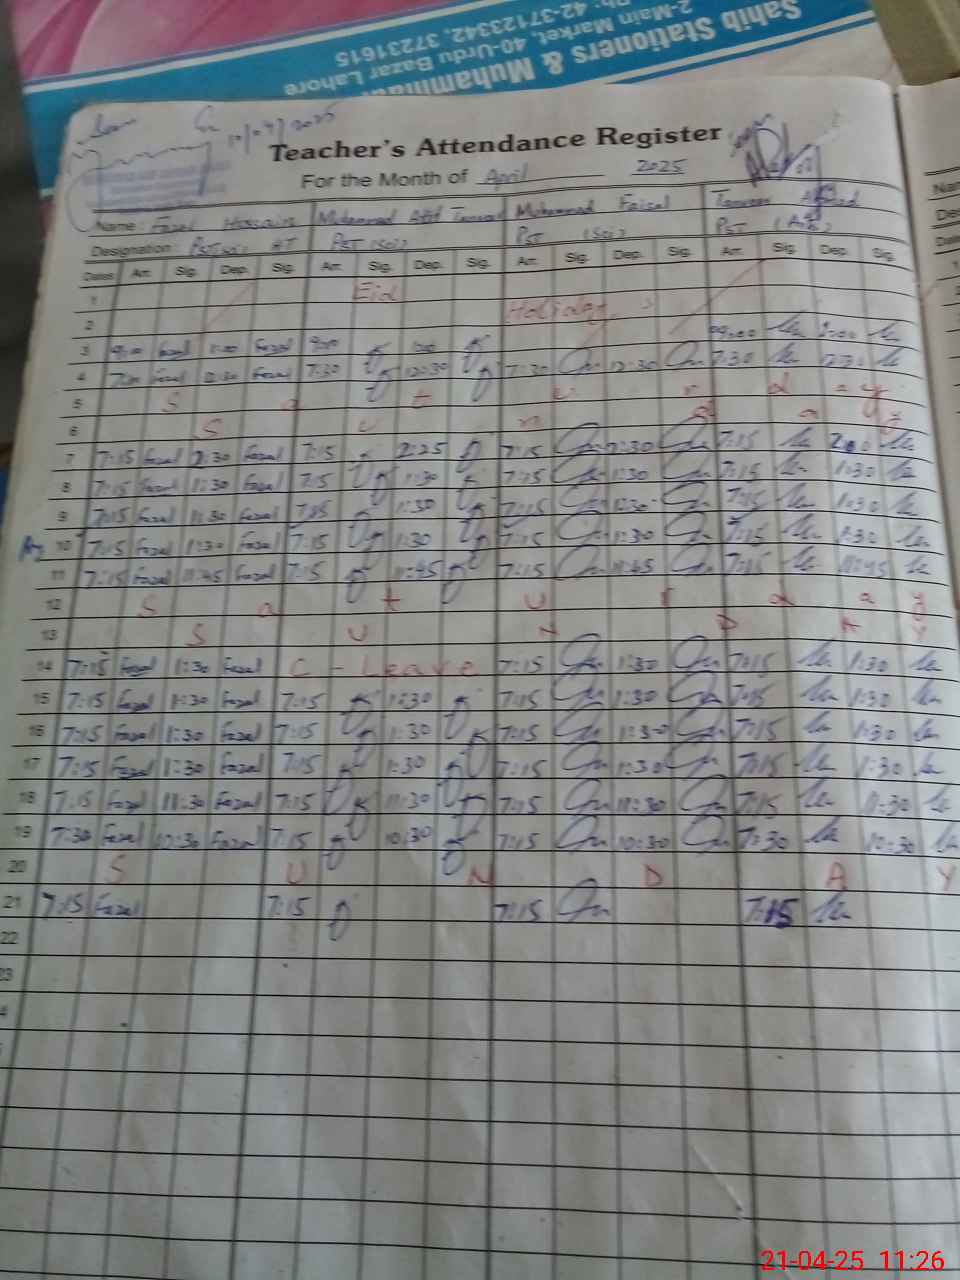 Sahib Stationers & Muhammad
2-Main Market, 40-Urdu Bazar Lahore
Ph: 42-37123342, 37231615
10/04/2025
Teacher's Attendance Register
For the Month of April 2025
Name: Fazal Hossain Muhammad Atif Muhammad Faisal
Designation: PST (Sci) PST (Sci) PST
Dates Arr. Sig. Dep. Sig. Arr. Sig. Dep. Sig. Arr. Sig. Dep. Sig. Arr. Sig. Dep. Sig.
1 Eid
2 Holiday, s
3 Fazal Fazal
4 Fazal 12:30 Fazal 7:30 12:30 7:30 12:30 7:30 12:30
5 S a t u r d a y
6 S u n d a y
7 7:15 Fazal 2:30 Fazal 7:15 2:25 7:15 2:30 7:15
8 7:15 Fazal 1:30 Fazal 7:15 1:30 7:15 1:30 7:15 1:30
9 7:15 Fazal 11:30 Fazal 7:15 1:30 7:15 7:15 1:30
10 7:15 Fazal 1:30 Fazal 7:15 1:30 7:15 1:30 7:15 1:30
11 7:15 Fazal 11:45 Fazal 7:15 11:45 7:15 11:45 7:15 11:45
12 S a t u r d a y
13 S U N D A Y
14 7:15 Fazal 1:30 Fazal C - Leave 7:15 1:30 7:15 1:30
15 7:15 Fazal 1:30 Fazal 7:15 1:30 7:15 1:30 7:15 1:30
16 7:15 Fazal 1:30 Fazal 7:15 1:30 7:15 1:30 7:15 1:30
17 7:15 Fazal 1:30 Fazal 7:15 1:30 7:15 1:30 7:15 1:30
18 7:15 Fazal 11:30 Fazal 7:15 11:30 7:15 11:30 7:15 11:30
19 7:30 Fazal 10:30 Fazal 7:15 10:30 7:15 10:30 7:30 10:30
20 S U N D A Y
21 7:15 Fazal 7:15 7:15 7:15
22
23
21-04-25 11:26